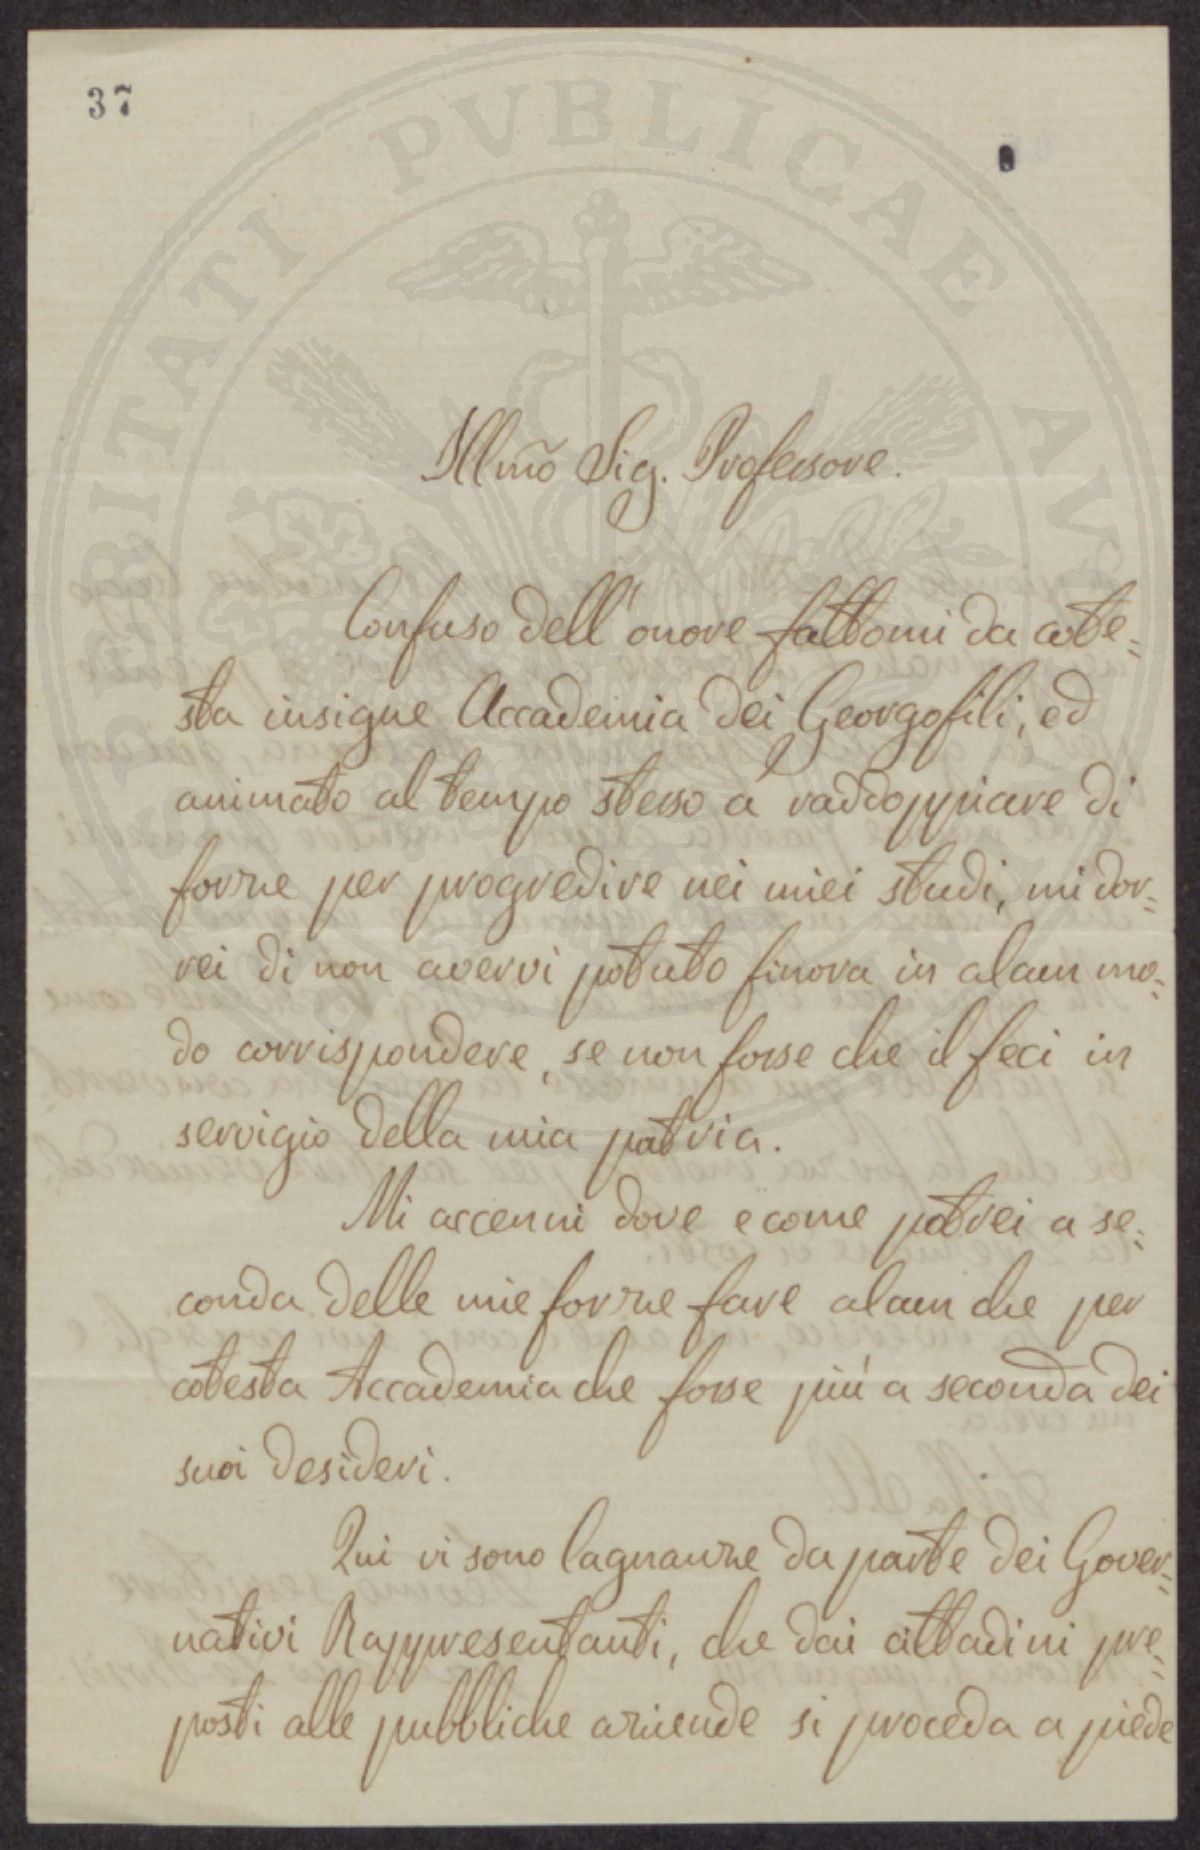 37
PROSPERITATI PVBLICAE AV
Illmo Sig. Professore.
Confuso dell'onore fattomi da cote=
sta insigne Accademia dei Georgofili, ed
animato al tempo stesso a raddoppiare di
forze per progredire nei miei studi, mi dor=
rei di non avervi potuto finora in alcun mo=
do corrispondere, se non forse che il feci in
servigio della mia patria.
Mi accenni dove e come potrei a se=
conda delle mie forze fare alcun che per
cotesta Accademia che forse più a seconda dei
suoi desideri.
Qui vi sono lagnanze da parte dei Gover=
nativi Rappresentanti, che dai cittadini pre=
posti alle pubbliche aziende si proceda a piede